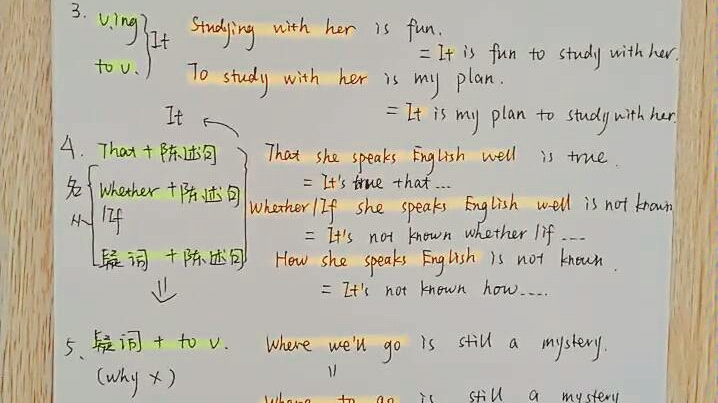 3. V.ing } It Studying with her is fun.
= It is fun to study with her.
to V. To study with her is my plan.
= It is my plan to study with her.
It
4. That + 陈述句 That she speaks English well is true.
= It's true that...
名 whether + 陈述句 Whether/If she speaks English well is not known
/If = It's not known whether/if ....
疑词 + 陈述句 How she speaks English is not known.
= It's not known how....
5. 疑词 + to v. Where we'll go is still a mystery.
(why ×) =
Where to go is still a mystery